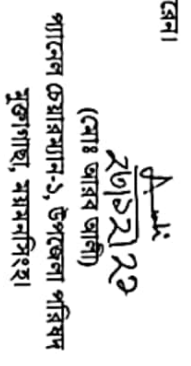 বেন।
২৬/১২/২৩
(মোঃ আরব আলী)
প্যানেল চেয়ারম্যান-১, উপজেলা পরিষদ
মুক্তাগাছা, ময়মনসিংহ।